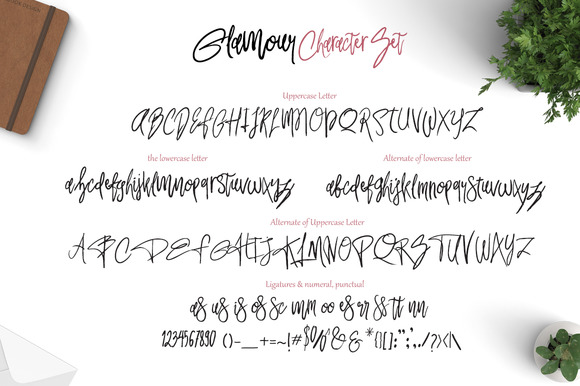 Glamour Character Set
Uppercase Letter
ABCDEFGHIJKLMNOPQRSTUVWXYZ
the lowercase letter
abcdefghijklmnopqrstuvwxyz
Alternate of lowercase letter
abcdefghijklmnopqrstuvwxyz
Alternate of Uppercase Letter
ABCDEFGHIJKLMNOPQRSTUVWXYZ
Ligatures & numeral, punctual
as us is os sc mm oo es rr ss tt nn
1234567890 ()-_+=~!#$%&& *{}[]:";',./?><|\